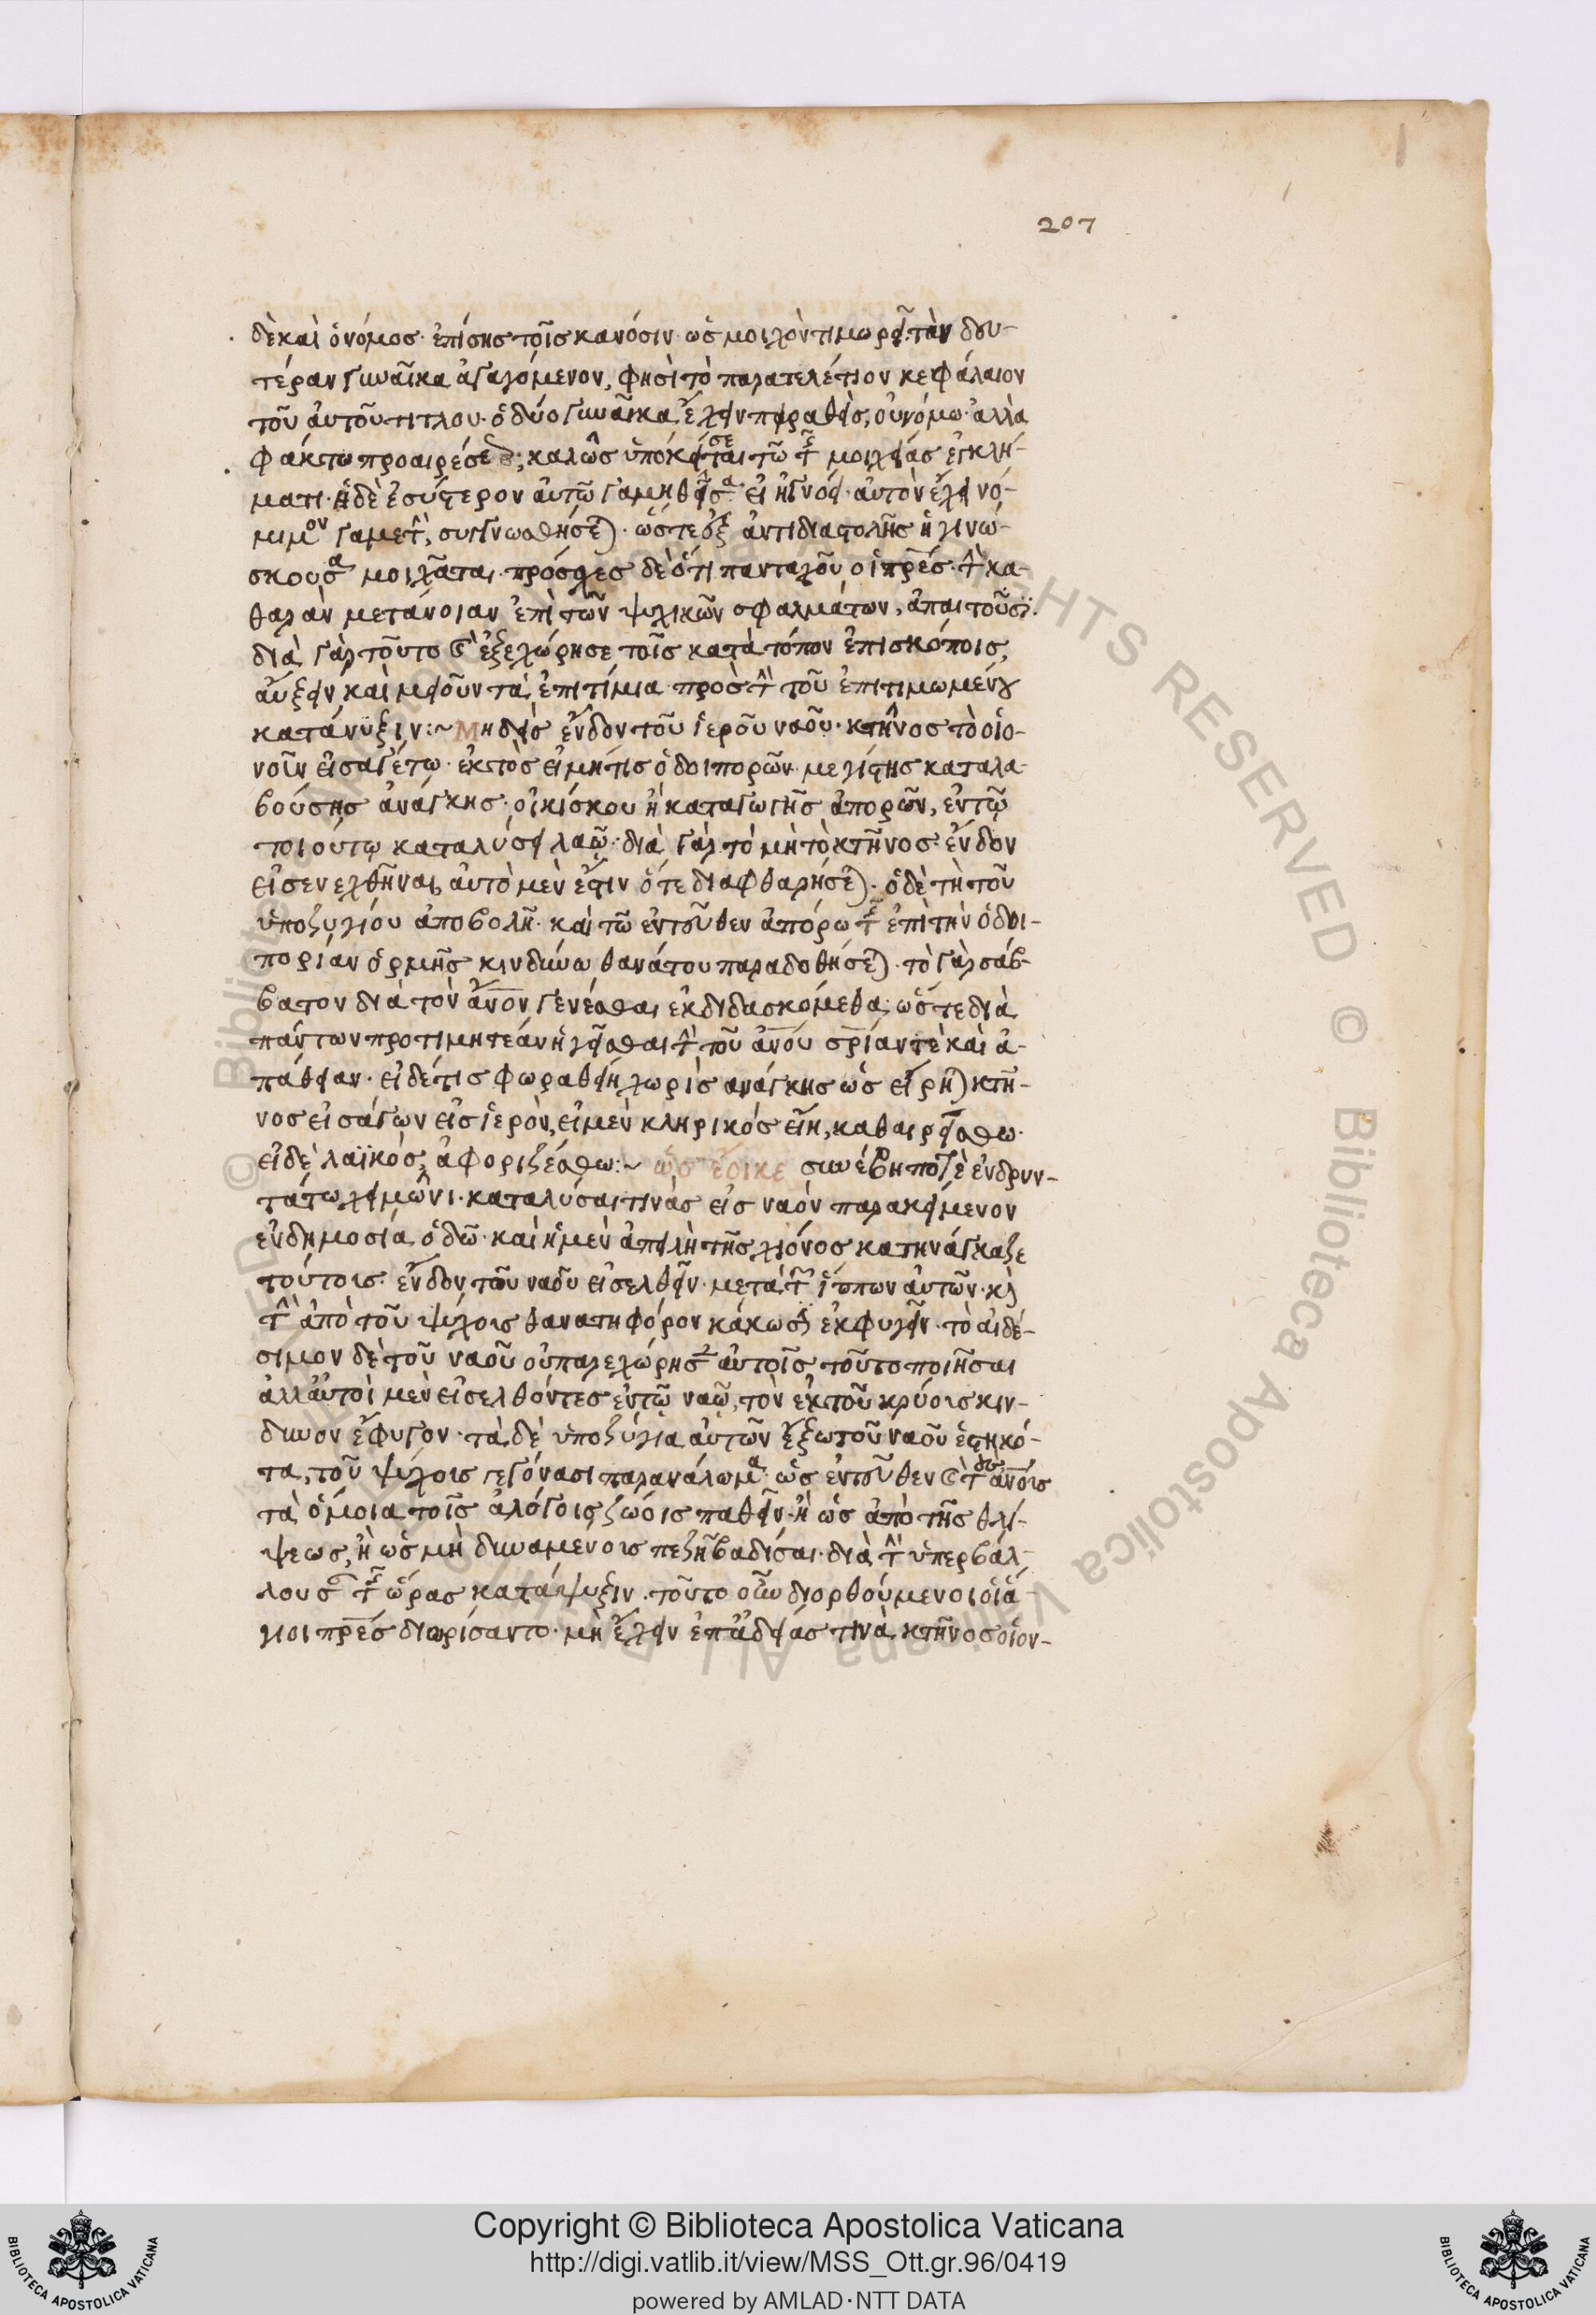 207
δὲ καὶ ὁ νόμος· ἐπίσης τοῖς κανόσιν· ὡς μοιχὸν τιμωρεῖται τὸν δευ-
τέραν γυναῖκα ἀγαγόμενον, φησὶ τὸ παρατελέτιον κεφάλαιον
τοῦ αὐτοῦ τίτλου· ὁ δύο γυναῖκας ἔχειν πειραθεὶς, οὐ νόμω· ἀλλὰ
φάκτω προαιρέσεως, καλῶς ὑπόκειται τῶ τῆς μοιχείας ἐγκλή-
ματι· ἡ δὲ ἐσύστερον αὐτῶ γαμηθεῖσα εἰ ἠγνόει· αὐτὸν ἔχει νό-
μιμον γαμετὴν, συγγνωσθήσεται· ὥστε ἐξ ἀντιδιαστολῆς ἡ γινώ-
σκουσα μοιχᾶται· πρόσχες δὲ ὅτι πανταχοῦ οἱ πρες· τὴν κα-
θαρὰν μετάνοιαν ἐπὶ τῶν ψυχικῶν σφαλμάτων, ἀπαιτοῦσι·
διὰ γὰρ τοῦτο καὶ ἐξεχώρησε τοῖς κατὰ τόπον ἐπισκόποις,
αὔξειν, καὶ μειοῦν τὰ ἐπιτίμια πρὸς τὴν τοῦ ἐπιτιμωμένου
κατάνυξιν:~ Μηδεὶς ἔνδον τοῦ ἱεροῦ ναοῦ· κτῆνος τὸ οἱο-
νοῦν εἰσαγέτω· ἐκτὸς εἰ μήτις ὁδοιπορῶν· μεγίστης καταλα-
βούσης ἀνάγκης· οἰκίσκου ἢ καταγωγῆς ἀπορῶν, ἐν τῶ
τοιούτω καταλύσει ναῶ· διὰ γὰρ τό μὴ τὸ κτῆνος ἔνδον
εἰσενεχθῆναι, αὐτὸ μὲν ἔστιν ὅτε διαφθαρήσεται· ὁ δὲ τῆ τοῦ
ὑποζυγίου ἀποβολῆ· καὶ τῶ ἐντεῦθεν ἀπόρω τῆς ἐπὶ τὴν ὁδοι-
πορίαν ὁρμῆς κινδύνω θανάτου παραδοθήσεται· τὸ γὰρ σάβ-
βατον διὰ τὸν ανον γενέσθαι ἐκδιδασκόμεθα· ὥστε διὰ
πάντων προτιμητεάν ἡγεῖσθαι τὴν τοῦ ανου σριαν τὲ καὶ ἀ-
πάθειαν· εἰ δέ τις φωραθείη χωρὶς ἀνάγκης ὡς εἴρηται κτῆ-
νος εἰσάγων εἰς ἱερὸν, εἰ μὲν κληρικὸς εἴη, καθαιρείσθω·
εἰ δὲ λαϊκὸς, ἀφοριζέσθω:~ ὡς ἔοικε συνέβη ποτὲ ἐν δρυν-
τάτω χειμῶνι· καταλῦσαι τινὰς εἰς ναὸν παρακείμενον
ἐν δημοσία ὁδῶ· καὶ ἡ μὲν ἀπειλὴ τῆς χιόνος κατηνάγκαζε
τούτοις· ἔνδον τοῦ ναοῦ εἰσελθεῖν· μετὰ τῶν ἵππων αὐτῶν· καὶ
τὴν ἀπὸ τοῦ ψύχους θανατηφόρον κάκωσιν ἐκφυγεῖν· τὸ αἰδέ-
σιμον δὲ τοῦ ναοῦ οὐ παρεχώρησεν αὐτοῖς τοῦτο ποιῆσαι
ἀλλ' αὐτοὶ μὲν εἰσελθόντες ἐν τῶ ναῶ, τὸν ἐκ τοῦ κρύους κίν-
δυνον ἔφυγον· τὰ δὲ ὑποζύγια αὐτῶν ἔξω τοῦ ναοῦ ἑστηκό-
τα, τοῦ ψύχους γεγόνασι παρανάλωμα· ὡς ἐντεῦθεν καὶ τοὺς ανους
τὰ ὅμοια τοῖς ἀλόγοις ζώοις παθεῖν· ἢ ὡς ἀπὸ τῆς θλί-
ψεως, ἢ ὡς μὴ δυναμένους πεζῆ βαδίσαι· διὰ τὴν ὑπερβάλ-
λουσαν τῆς ὥρας κατάψυξιν· τοῦτο οὖν διορθούμενοι οἱ ἅ-
γιοι πρες διωρίσαντο· μὴ ἔχειν ἐπ' ἀδείας τινὰ κτῆνος οἷον-
Copyright © Biblioteca Apostolica Vaticana
http://digi.vatlib.it/view/MSS_Ott.gr.96/0419
powered by AMLAD·NTT DATA